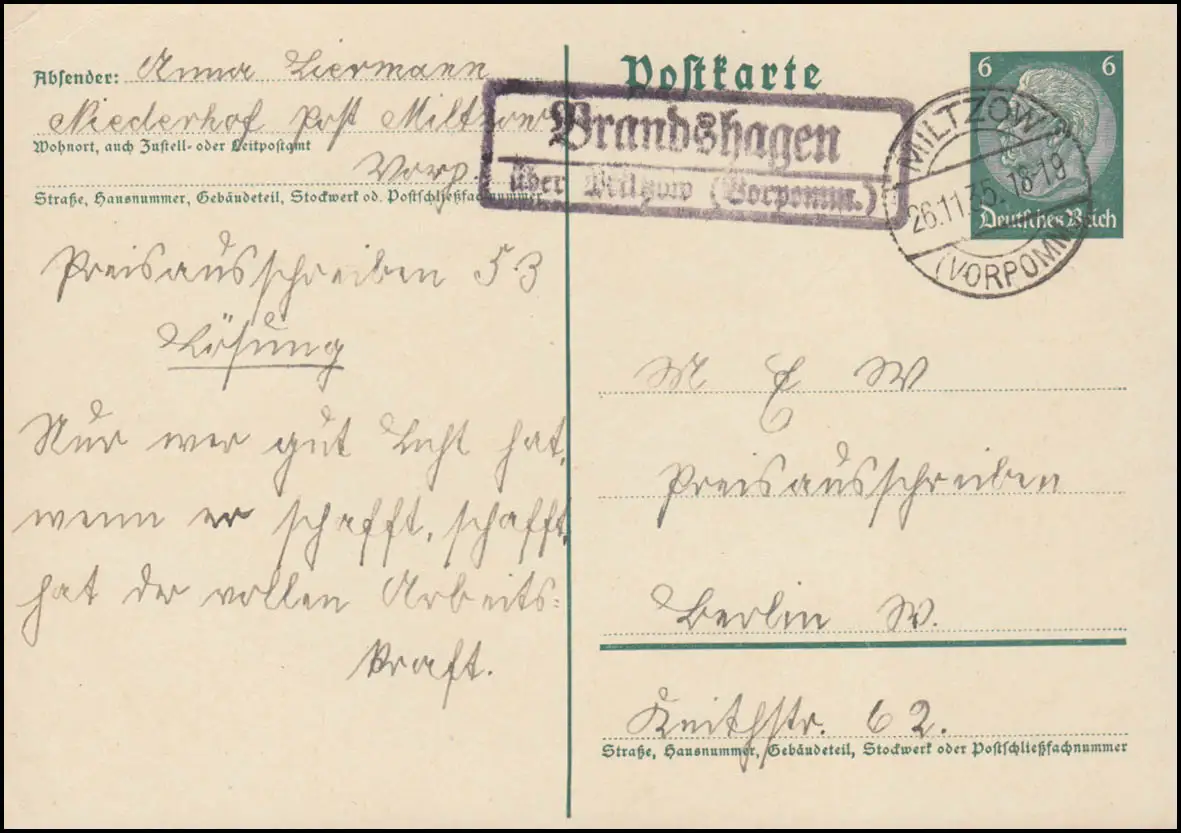 Absender: Anna Liermann
Niederhof Post Miltzow
Wohnort, auch Zustell- oder Leitpostamt
Vorp.
Straße, Hausnummer, Gebäudeteil, Stockwerk od. Postschließfachnummer
Preisausschreiben 53
Lösung
Nur wer gut Licht hat,
wenn er schafft, schafft,
hat der vollen Arbeits-
kraft.
Postkarte
Brandshagen
über Miltzow (Vorpomm.)
6 6
Deutsches Reich
MILTZOW
26.11.35. 18-19
(VORPOMM)
M E W
Preisausschreiben
Berlin W.
Keithstr. 62.
Straße, Hausnummer, Gebäudeteil, Stockwerk oder Postschließfachnummer